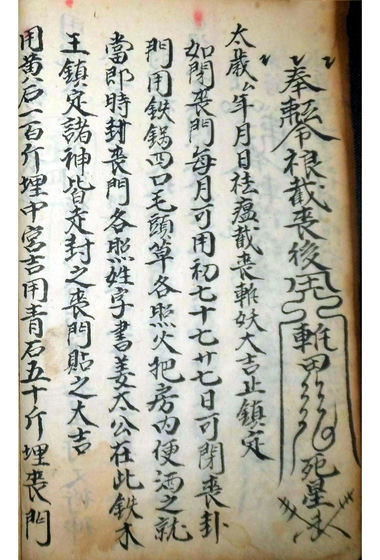 奉敕令根截喪後
斬 死星
太歲厶年月日祛瘟截喪斬妖大吉止鎮定
如閉喪門每月可用初七十七廿七日可閉喪卦
門用鉄鍋四口毛頭草各照火把房内便洒之就
當即時封喪門各照姓字書姜太公在此鉄木
王鎮定諸神皆走封之喪門貼之大吉
用黄石一百斤埋中宮吉用青石五十斤埋喪門